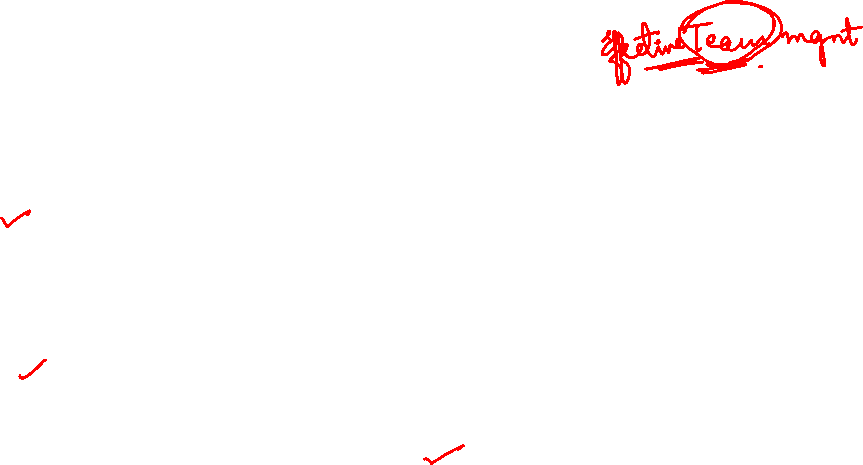 effective Team mgnt